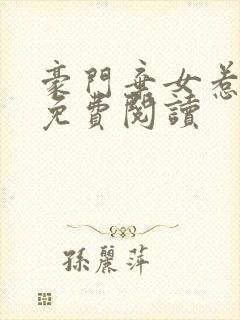 豪門棄女惹
免費閱讀
孫麗萍